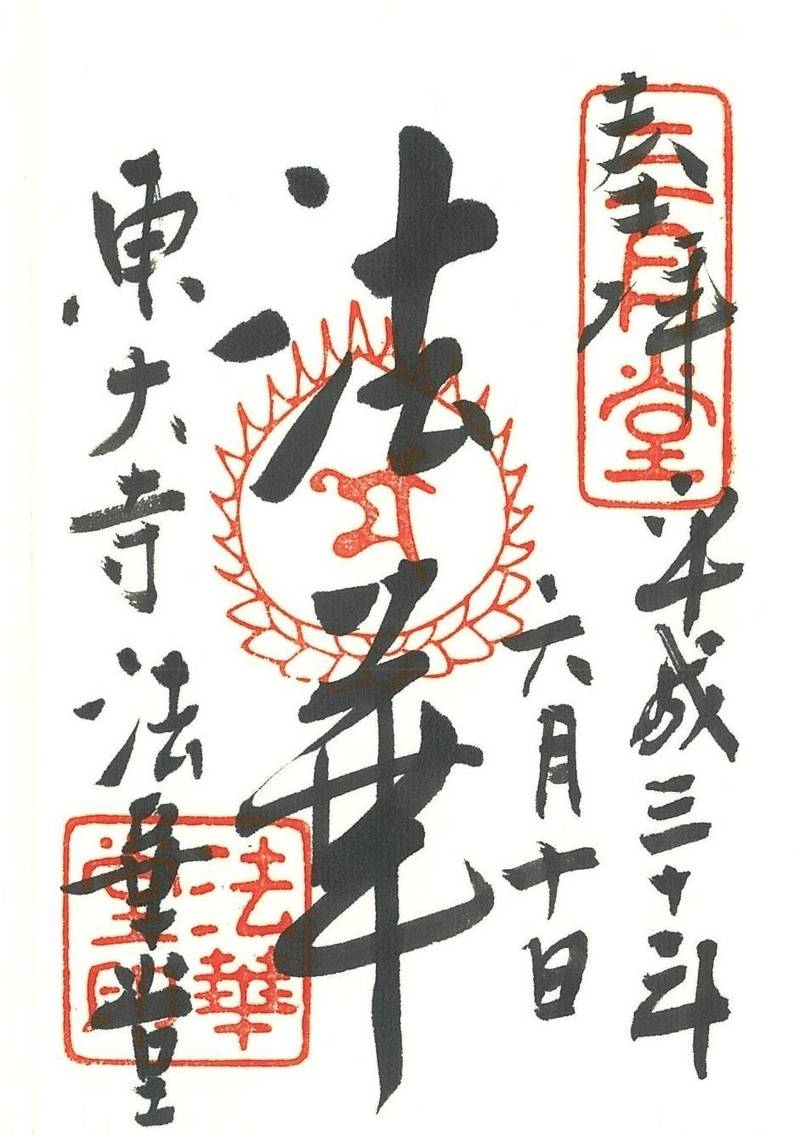 奉拝
三月堂
平成三十年
六月十日
法華
東大寺法華堂
法華
堂印